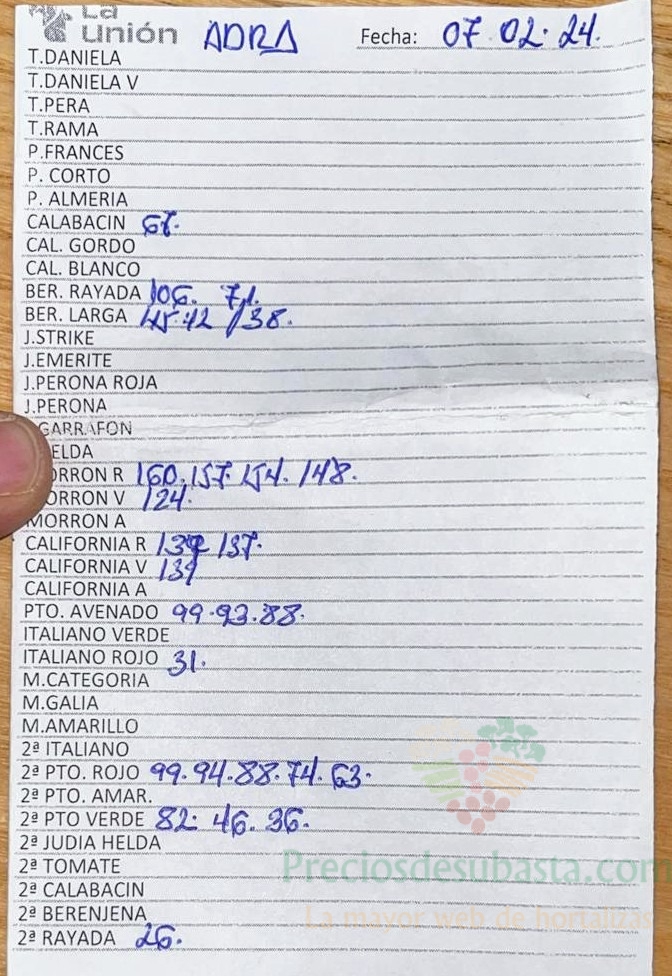 La
Unión ADRA Fecha: 07 02. 24.
T.DANIELA
T.DANIELA V
T.PERA
T.RAMA
P.FRANCES
P. CORTO
P. ALMERIA
CALABACIN 67.
CAL. GORDO
CAL. BLANCO
BER. RAYADA 106. 71.
BER. LARGA 45.42 /38.
J.STRIKE
J.EMERITE
J.PERONA ROJA
J.PERONA
GARRAFON
ELDA
ORRON R 160.157.154.148.
ORRON V 124.
MORRON A
CALIFORNIA R 137.
CALIFORNIA V
CALIFORNIA A
PTO. AVENADO 99.93.88.
ITALIANO VERDE
ITALIANO ROJO 31.
M.CATEGORIA
M.GALIA
M.AMARILLO
2ª ITALIANO
2ª PTO. ROJO 99.94.88.74.63.
2ª PTO. AMAR.
2ª PTO VERDE 82. 46. 36.
2ª JUDIA HELDA
2ª TOMATE
2ª CALABACIN
2ª BERENJENA
2ª RAYADA 26.
Preciosdesubasta.com
La mayor web de hortalizas